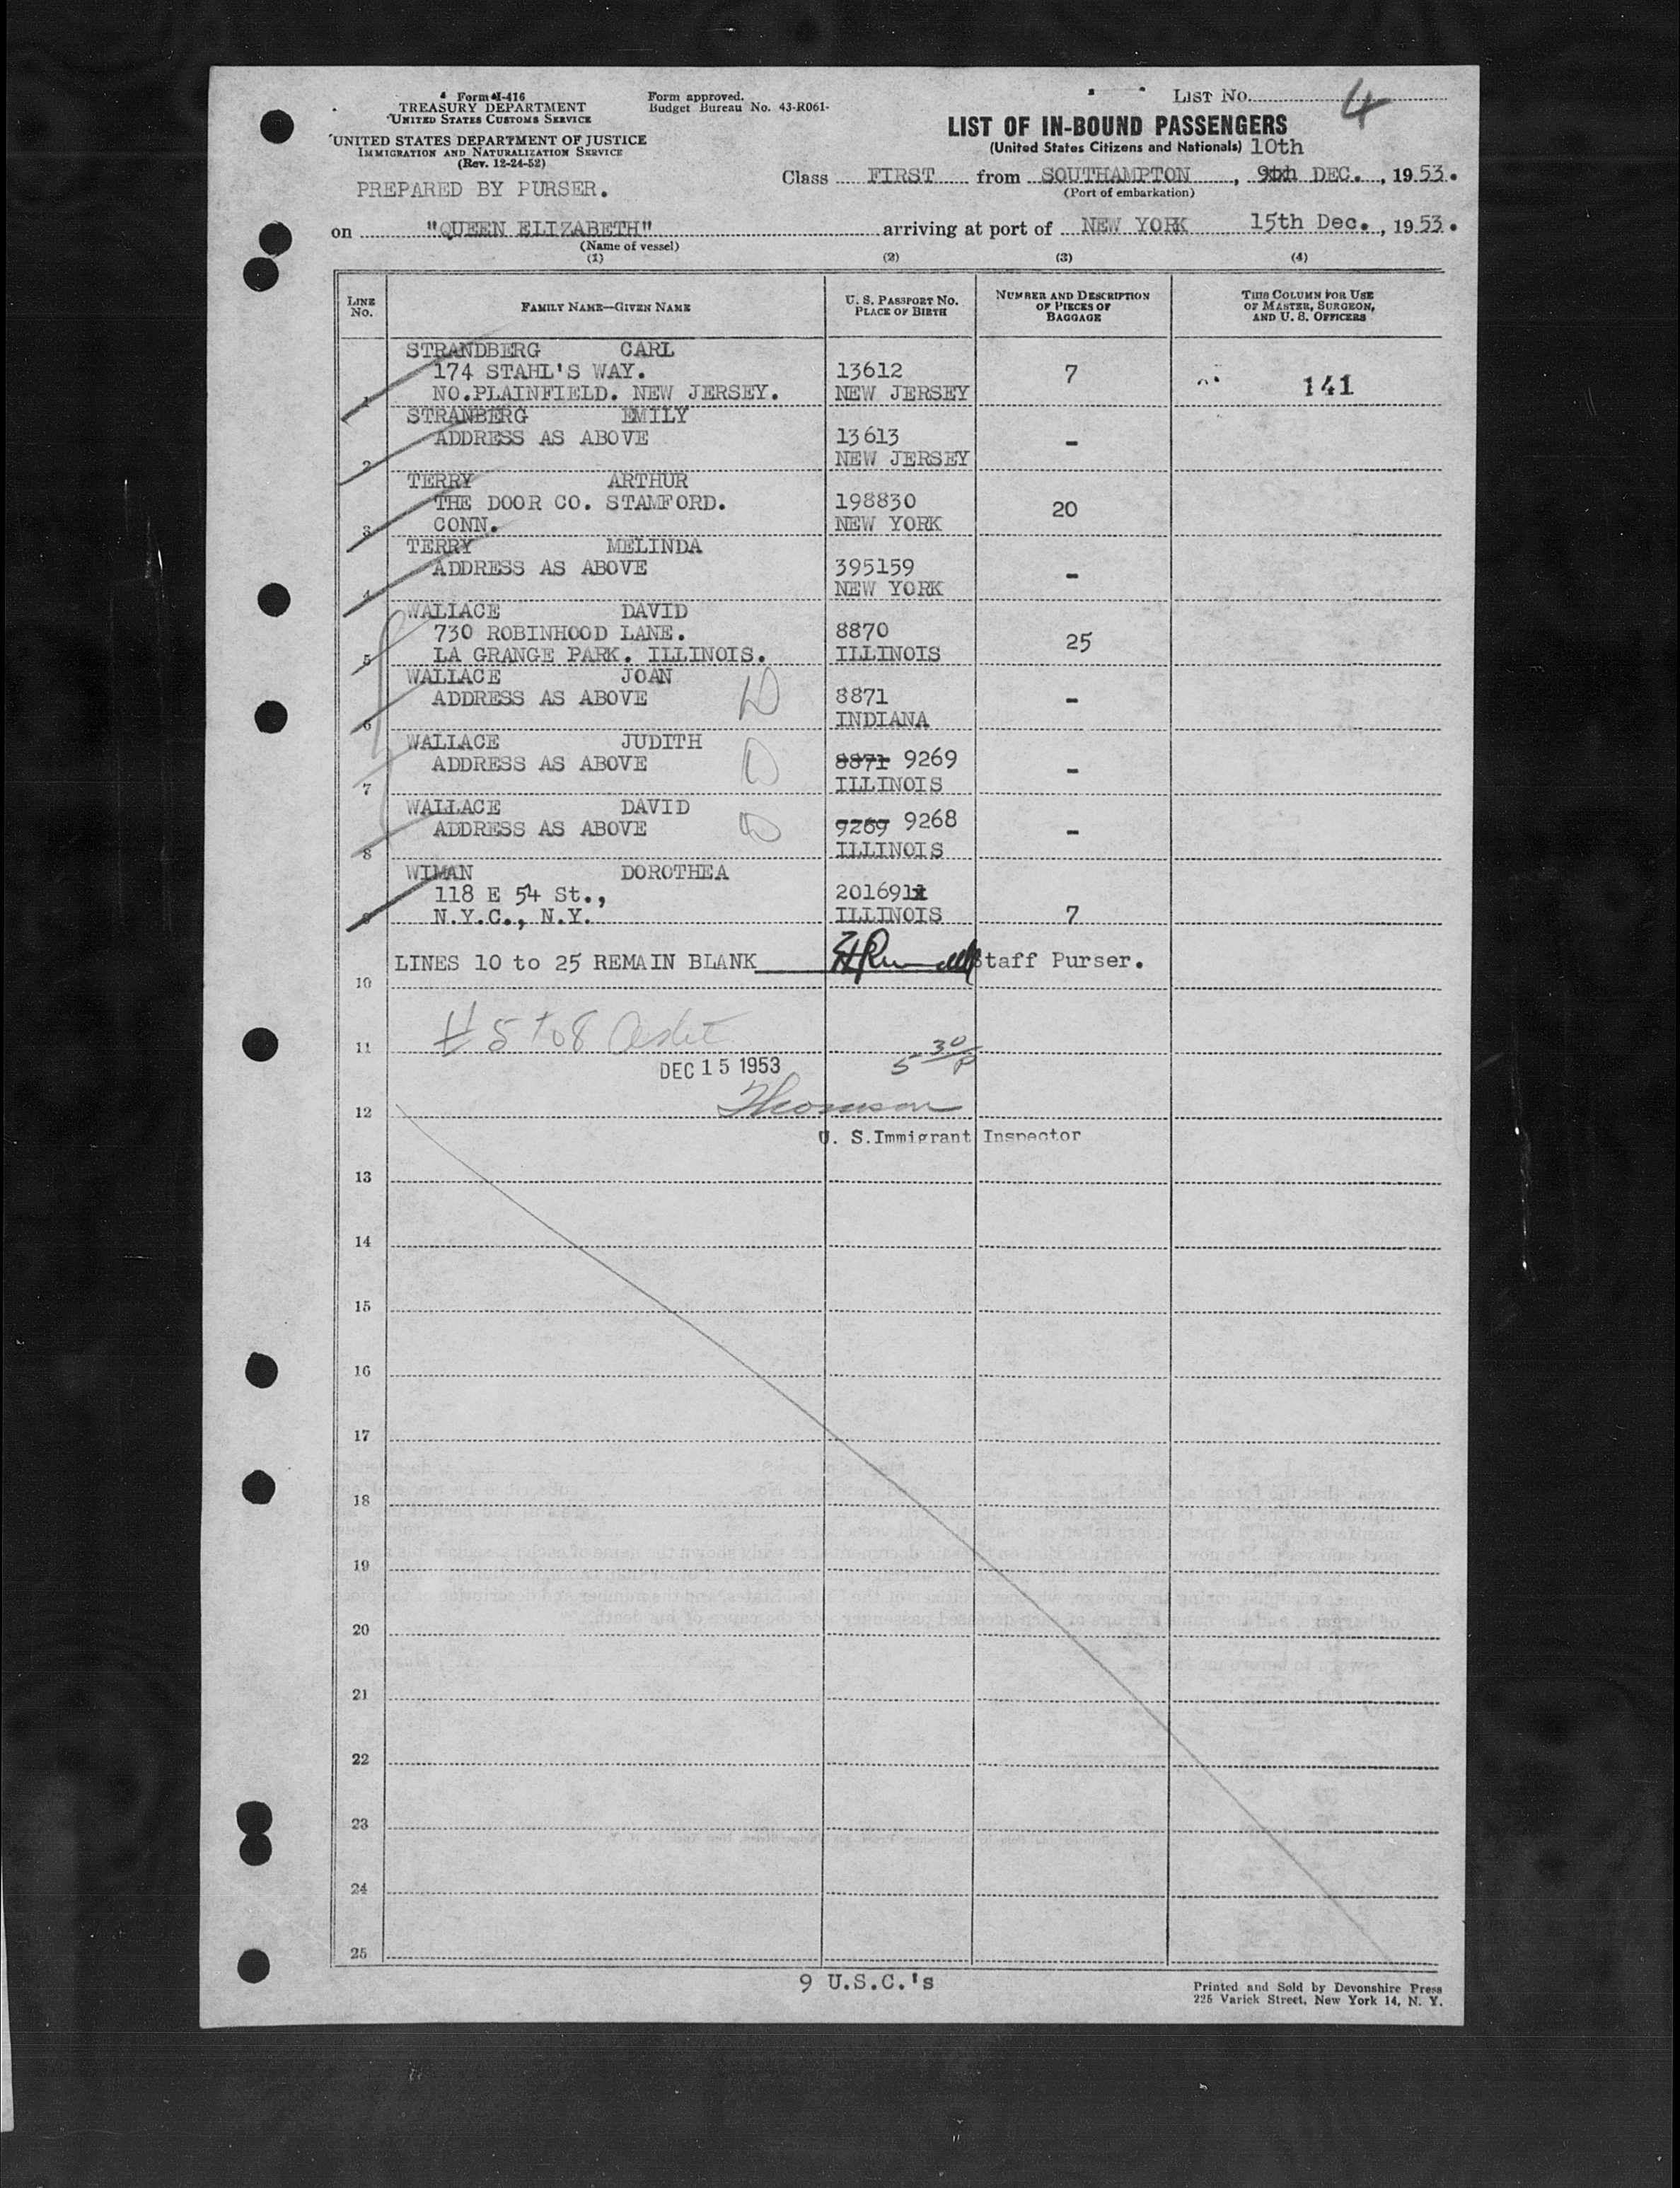 Form I-416
TREASURY DEPARTMENT
UNITED STATES CUSTOMS SERVICE
UNITED STATES DEPARTMENT OF JUSTICE
IMMIGRATION AND NATURALIZATION SERVICE
(Rev. 12-24-52)
PREPARED BY PURSER.
Form approved.
Budget Bureau No. 43-R061-
LIST NO. 4
LIST OF IN-BOUND PASSENGERS
(United States Citizens and Nationals) 10th
Class FIRST from SOUTHAMPTON, 9th DEC., 1953.
(Port of embarkation)
on "QUEEN ELIZABETH" arriving at port of NEW YORK 15th Dec., 1953.
(Name of vessel)
(1) (2) (3) (4)
LINE NO. FAMILY NAME—GIVEN NAME U. S. PASSPORT NO. PLACE OF BIRTH NUMBER AND DESCRIPTION OF PIECES OF BAGGAGE THIS COLUMN FOR USE OF MASTER, SURGEON, AND U. S. OFFICERS
STRANDBERG CARL
174 STAHL'S WAY. 13612 7 141
1 NO.PLAINFIELD. NEW JERSEY. NEW JERSEY
STRANBERG EMILY
ADDRESS AS ABOVE 13613 -
2 NEW JERSEY
TERRY ARTHUR
THE DOOR CO. STAMFORD. 198830 20
3 CONN. NEW YORK
TERRY MELINDA
ADDRESS AS ABOVE 395159 -
4 NEW YORK
WALLACE DAVID
730 ROBINHOOD LANE. 8870 25
5 LA GRANGE PARK. ILLINOIS. ILLINOIS
WALLACE JOAN
ADDRESS AS ABOVE D 8871 -
6 INDIANA
WALLACE JUDITH
ADDRESS AS ABOVE D 8871 9269 -
7 ILLINOIS
WALLACE DAVID
ADDRESS AS ABOVE D 9269 9268 -
8 ILLINOIS
WIMAN DOROTHEA
118 E 54 St., 201691
9 N.Y.C., N.Y. ILLINOIS 7
LINES 10 to 25 REMAIN BLANK Staff Purser.
10
# 5 to 8
11
DEC 15 1953 5 30/P
12 Thomson
U. S. Immigrant Inspector
13
14
15
16
17
18
19
20
21
22
23
24
25
9 U.S.C.'s
Printed and Sold by Devonshire Press
225 Varick Street, New York 14, N. Y.